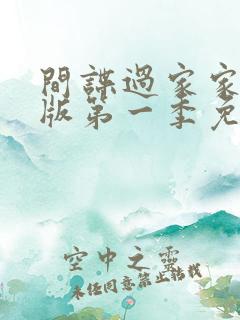 間諜過家家
版第一季免
空中之靈
未经同意禁止转载